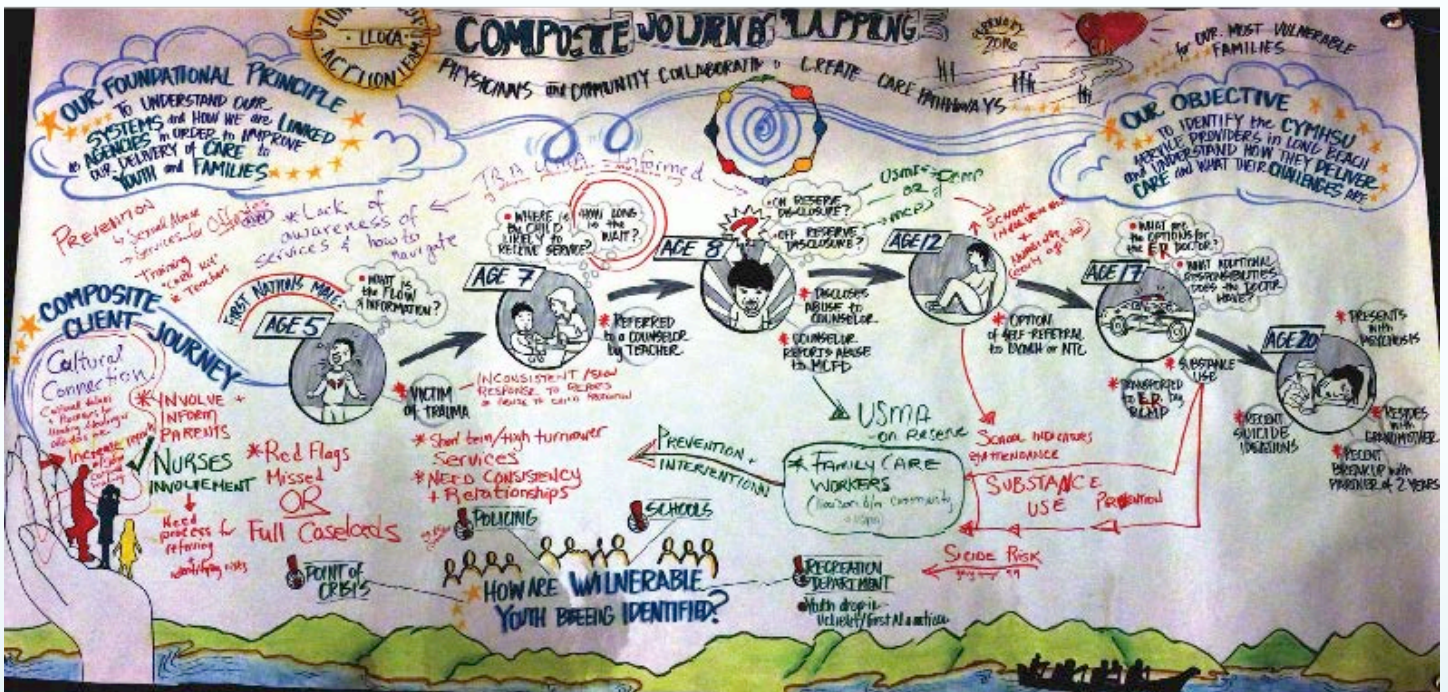 LLOCA
ACTION TEAM
COMPOSITE JOURNEY MAPPING
PHYSICIANS and COMMUNITY COLLABORATING to CREATE CARE PATHWAYS
ZONE
for OUR MOST VULNERABLE
FAMILIES
OUR FOUNDATIONAL PRINCIPLE
TO UNDERSTAND OUR
SYSTEMS and HOW WE are LINKED
as AGENCIES in ORDER to IMPROVE
OUR DELIVERY of CARE to
YOUTH and FAMILIES
OUR OBJECTIVE
TO IDENTIFY the CYMHSU
SERVICE PROVIDERS in LONG BEACH
and UNDERSTAND HOW THEY DELIVER
CARE and WHAT THEIR CHALLENGES ARE
TRAUMA - Informed
PREVENTION
Sexual Abuse
Services for Offenders
Training
Teachers
* Lack of
awareness of
services & how to
navigate
COMPOSITE
CLIENT JOURNEY
FIRST NATIONS MALE
AGE 5
WHAT IS
the FLOW
of INFORMATION?
* VICTIM
of TRAUMA
AGE 7
WHERE is
the CHILD
LIKELY to
RECEIVE SERVICE?
HOW LONG
is the
WAIT?
* REFERRED
to a COUNSELOR
by TEACHER
INCONSISTENT / SLOW
RESPONSE TO REPORTS
AGE 8
ON RESERVE
DISCLOSURE?
OFF RESERVE
DISCLOSURE?
USMA
OR
RCMP
MCFD
* DISCLOSES
ABUSE to
COUNSELOR
* COUNSELOR
REPORTS ABUSE
to MCFD
AGE 12
* SCHOOL
* OPTION
of SELF-REFERRAL
to CYMH or NTC
AGE 17
WHAT are
the OPTIONS for
the E.R. DOCTOR?
WHAT ADDITIONAL
RESPONSIBILITIES
DOES the DOCTOR
HAVE?
* TRANSPORTED
to E.R. by
RCMP
* SUBSTANCE
USE
AGE 20
* PRESENTS
with
PSYCHOSIS
* RECENT
SUICIDE
IDEATIONS
* RESIDES
with
GRANDMOTHER
* RECENT
BREAKUP with
PARTNER of 2 YEARS
Cultural
Connection
* INVOLVE +
INFORM
PARENTS
NURSES
INVOLVEMENT
Need
process for
referring
+ identifying risks
* Red Flags
Missed
OR
Full Caseloads
* Short term/High turnover
Services
* NEED CONSISTENCY
+ Relationships
PREVENTION +
INTERVENTION
USMA
- on Reserve
* FAMILY CARE
WORKERS
SCHOOL INDICATORS
ATTENDANCE
SUBSTANCE
USE
PREVENTION
SUICIDE RISK
POLICING
SCHOOLS
POINT OF
CRISIS
HOW ARE VULNERABLE
YOUTH BEEING IDENTIFIED?
RECREATION
DEPARTMENT
Youth drop-in